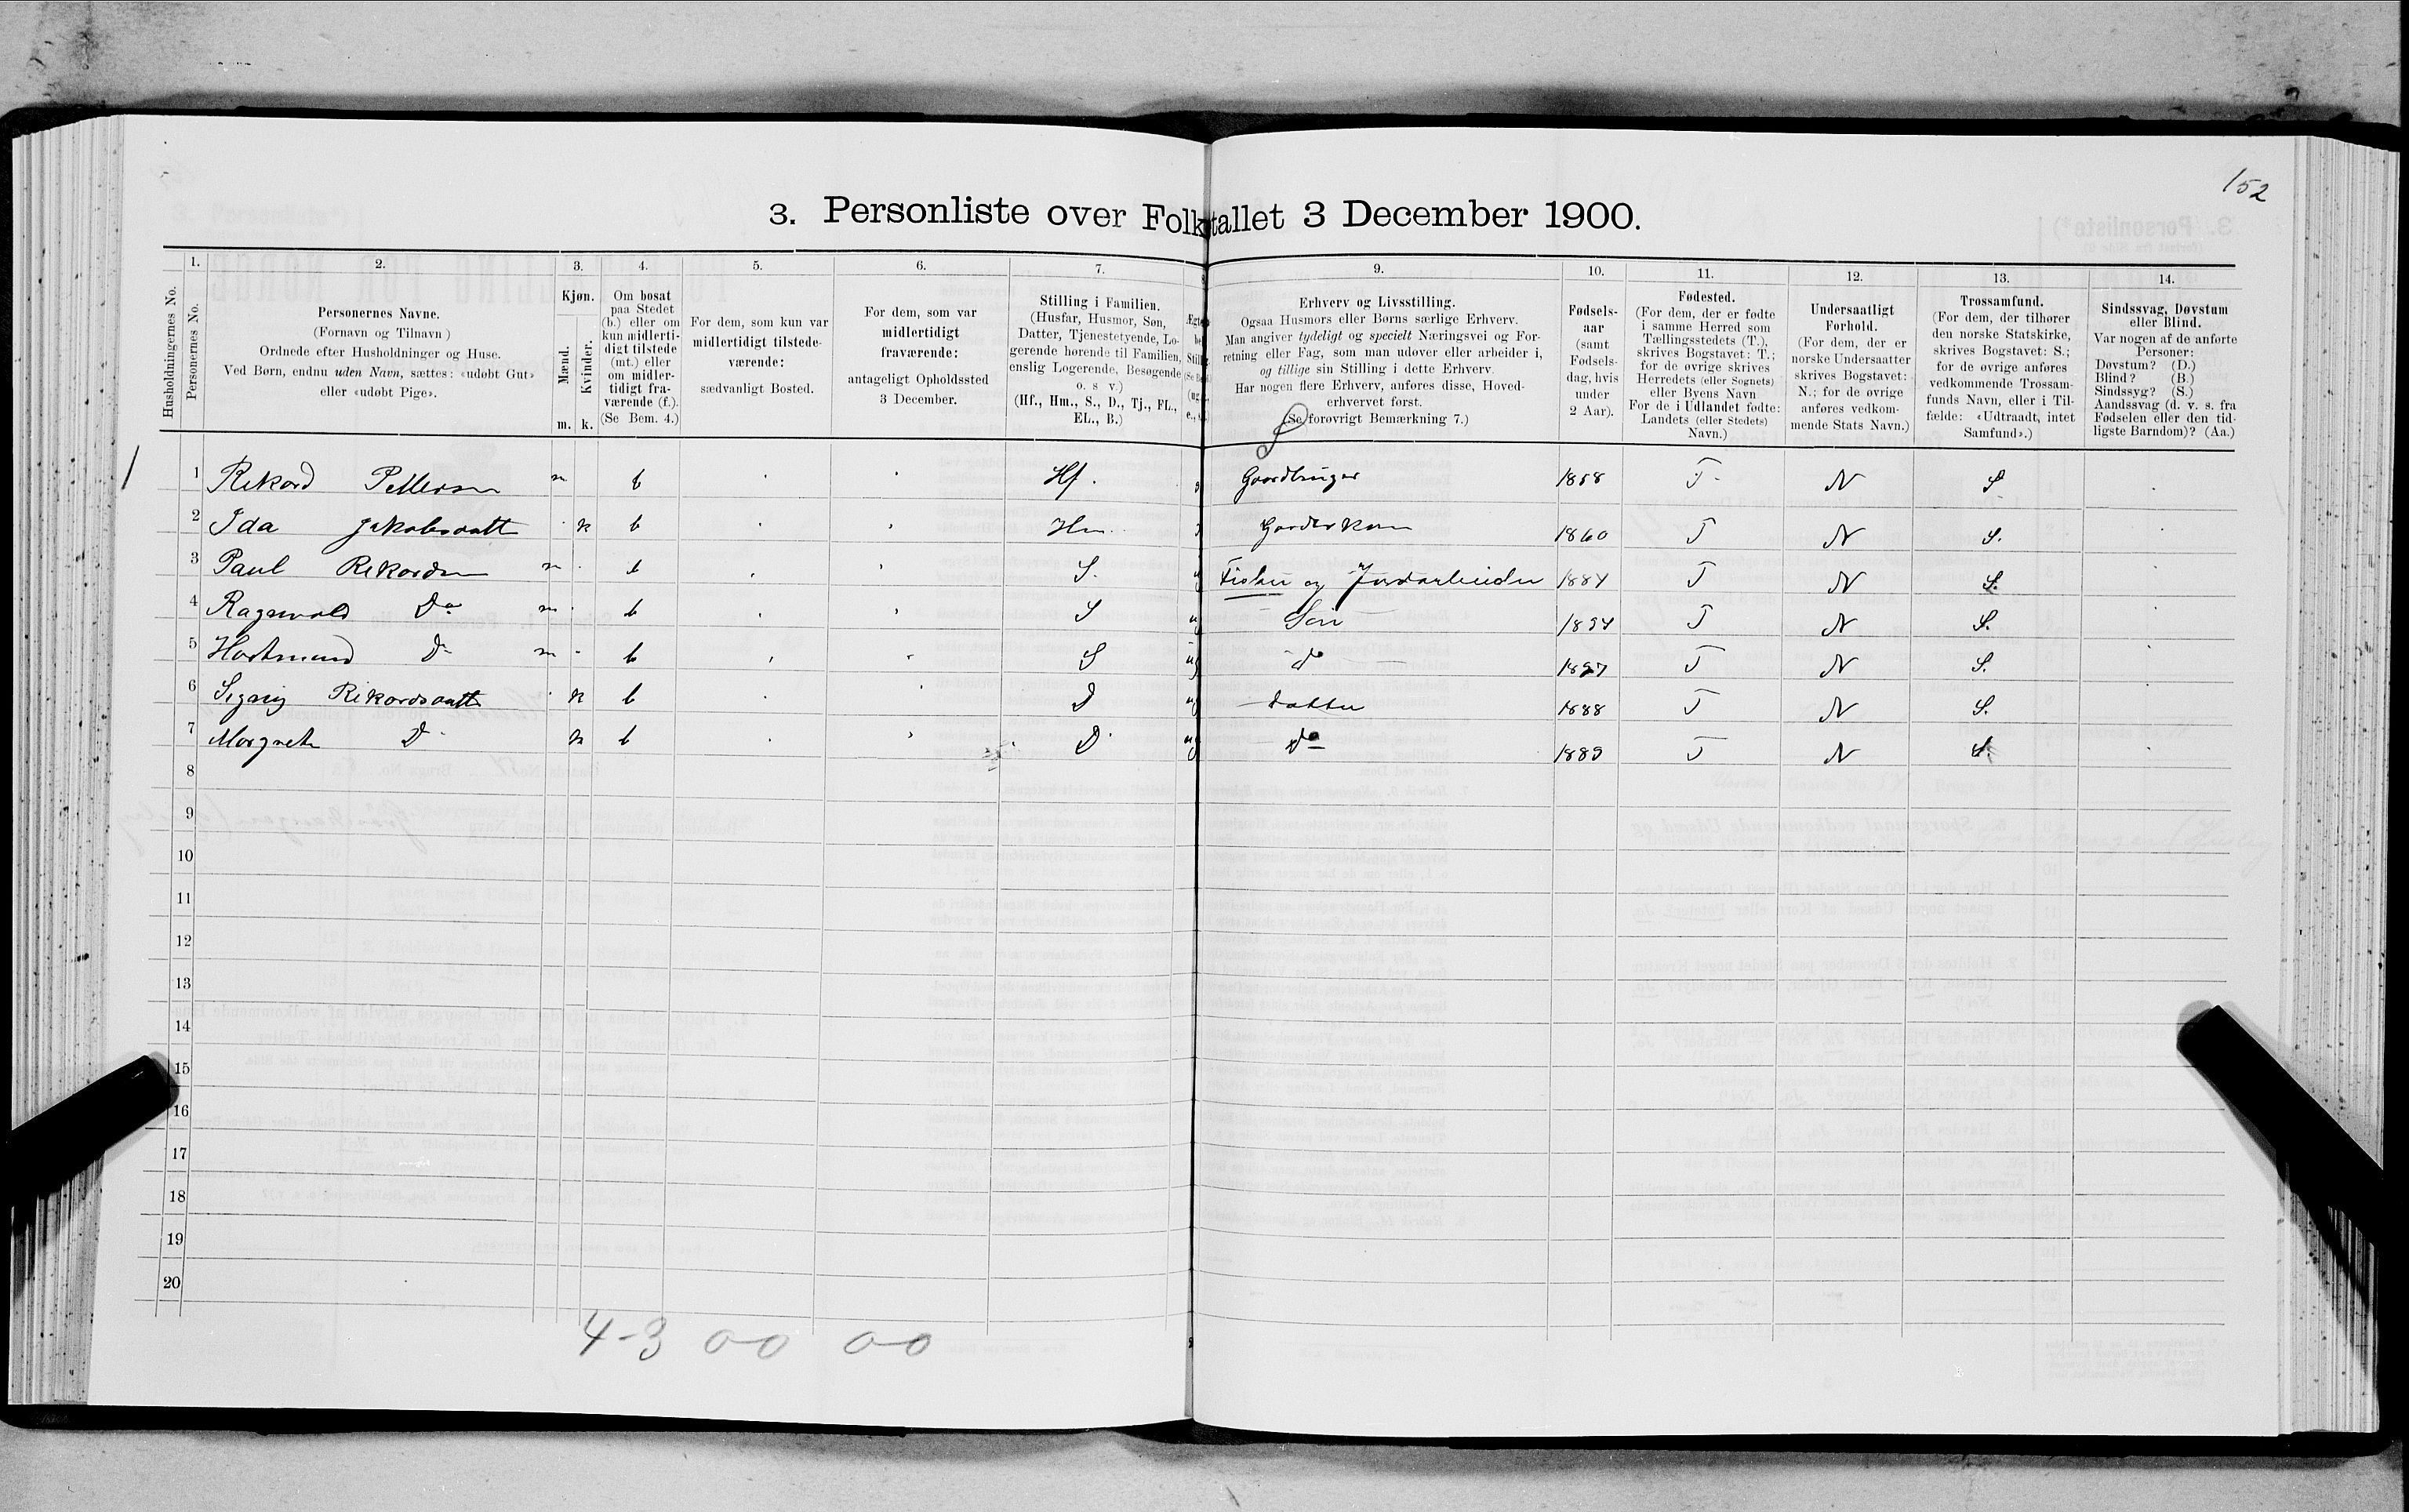 152
3. Personliste over Folketallet 3 December 1900.
1. 2. 3. 4. 5. 6. 7. 9. 10. 11. 12. 13. 14.
Husholdningernes No.
Personernes No.
Personernes Navne.
(Fornavn og Tilnavn)
Ordnede efter Husholdninger og Huse.
Ved Børn, endnu uden Navn, sættes: «udøbt Gut»
eller «udøbt Pige».
Kjøn.
Mænd.
Kvinder.
m. k.
Om bosat
paa Stedet
(b.) eller om
kun midlerti-
digt tilstede
(mt.) eller
om midler-
tidigt fra-
værende (f.).
(Se Bem. 4.)
For dem, som kun var
midlertidigt tilstede-
værende:
sædvanligt Bosted.
For dem, som var
midlertidigt
fraværende:
antageligt Opholdssted
3 December.
Stilling i Familien.
(Husfar, Husmor, Søn,
Datter, Tjenestetyende, Lo-
gerende hørende til Familien,
enslig Logerende, Besøgende
o. s v.)
(Hf., Hm., S., D., Tj., FL.,
EL., B.)
Erhverv og Livsstilling.
Ogsaa Husmors eller Børns særlige Erhverv.
Man angiver tydeligt og specielt Næringsvei og For-
retning eller Fag, som man udøver eller arbeider i,
og tillige sin Stilling i dette Erhverv.
Har nogen flere Erhverv, anføres disse, Hoved-
erhvervet først.
(Se forøvrigt Bemærkning 7.)
Fødsels-
aar
(samt
Fødsels-
dag, hvis
under
2 Aar).
Fødested.
(For dem, der er fødte
i samme Herred som
Tællingsstedets (T.),
skrives Bogstavet: T.;
for de øvrige skrives
Herredets (eller Sognets)
eller Byens Navn
For de i Udlandet fødte:
Landets (eller Stedets)
Navn.)
Undersaatligt
Forhold.
(For dem, der er
norske Undersaatter
skrives Bogstavet:
N.; for de øvrige
anføres vedkom-
mende Stats Navn.)
Trossamfund.
(For dem, der tilhører
den norske Statskirke,
skrives Bogstavet: S.;
for de øvrige anføres
vedkommende Trossam-
funds Navn, eller i Til-
fælde: «Udtraadt, intet
Samfund».)
Sindssvag, Døvstum
eller Blind.
Var nogen af de anførte
Personer:
Døvstum? (D.)
Blind? (B.)
Sindssyg? (S.)
Aandssvag (d. v. s. fra
Fødselen eller den tid-
ligste Barndom)? (Aa.)
1 1 Rekord Pettersen m b Hf. Gaardbruger 1858 T N S
2 Ida Jakobsdatt k b Hm. Gaardbr Kone 1860 T N S.
3 Paul Rekordsen m b S. ug Fisker og Jordarbeider 1884 T N S.
4 Ragnvald Do m b S ug Søn 1894 T N S.
5 Hartmand D m b S ug do 1897 T N S.
6 Signy Rikordsdatt k b D ug Datter 1888 T N S.
7 Margrete D k b D ug Do 1889 T N S
8
9
10
11
12
13
14
15
16
17
18
19
20
4-3 0-0 0-0